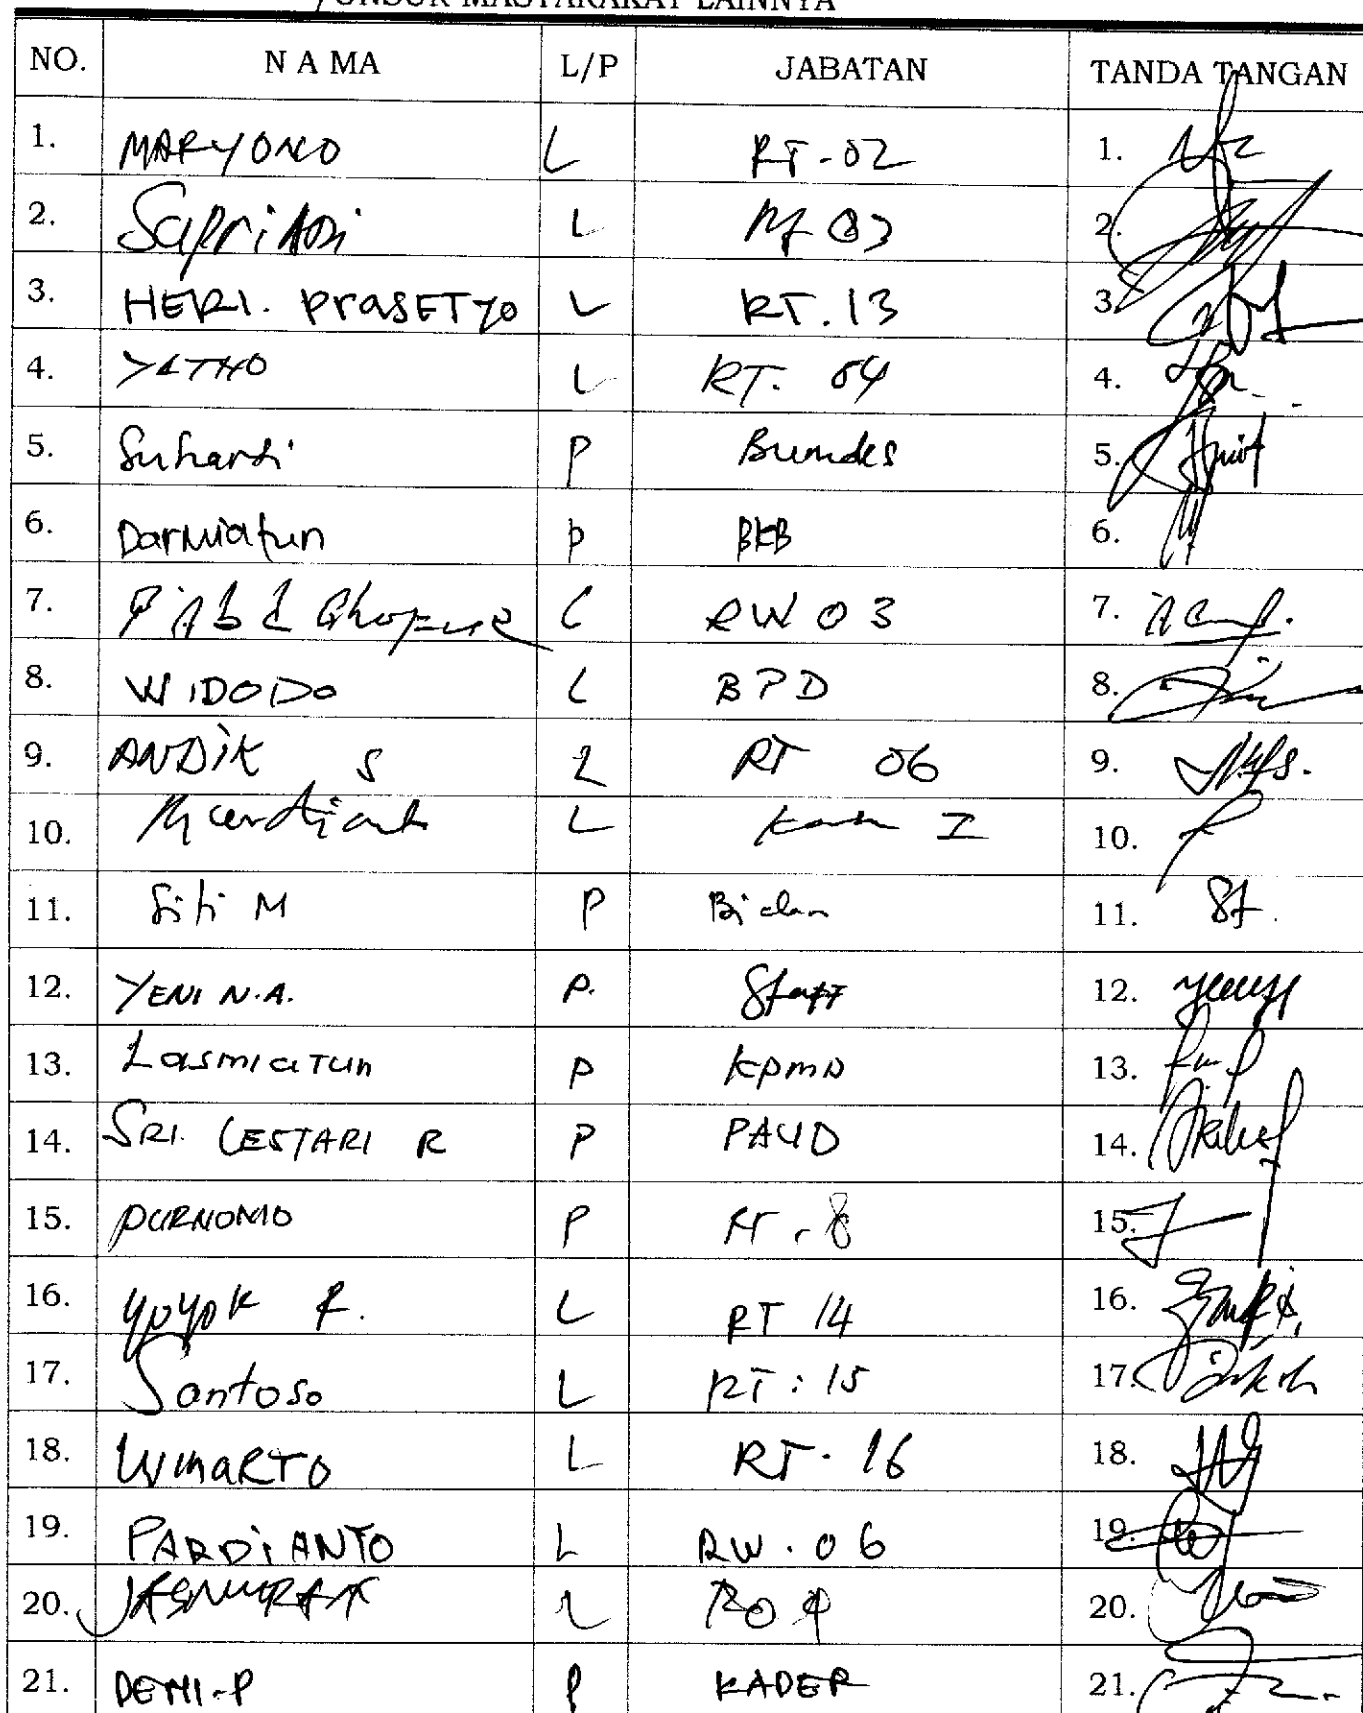 /UNSUR MASYARAKAT LAINNYA
NO. N A MA L/P JABATAN TANDA TANGAN
1. MARYONO L RT-02 1.
2. Sapriadi L RT 03 2.
3. HERI. PrasETyo L RT.13 3.
4. YATNO L RT. 04 4.
5. Suharti P Bumdes 5.
6. Darmiatun P BKB 6.
7. L RW 03 7.
8. WIDODO L BPD 8.
9. ANDIK S L RT 06 9.
10. L 10.
11. Siti M P Bidan 11.
12. YENI N.A. P. Staff 12.
13. Lasmiatun P KPMD 13.
14. SRI. LESTARI R P PAUD 14.
15. PURNOMO P RT. 8 15.
16. yoyok R. L RT 14 16.
17. Santoso L RT: 15 17.
18. WinaRTO L RT. 16 18.
19. PARDIANTO L RW. 06 19.
20. L 20.
21. P KADER 21.